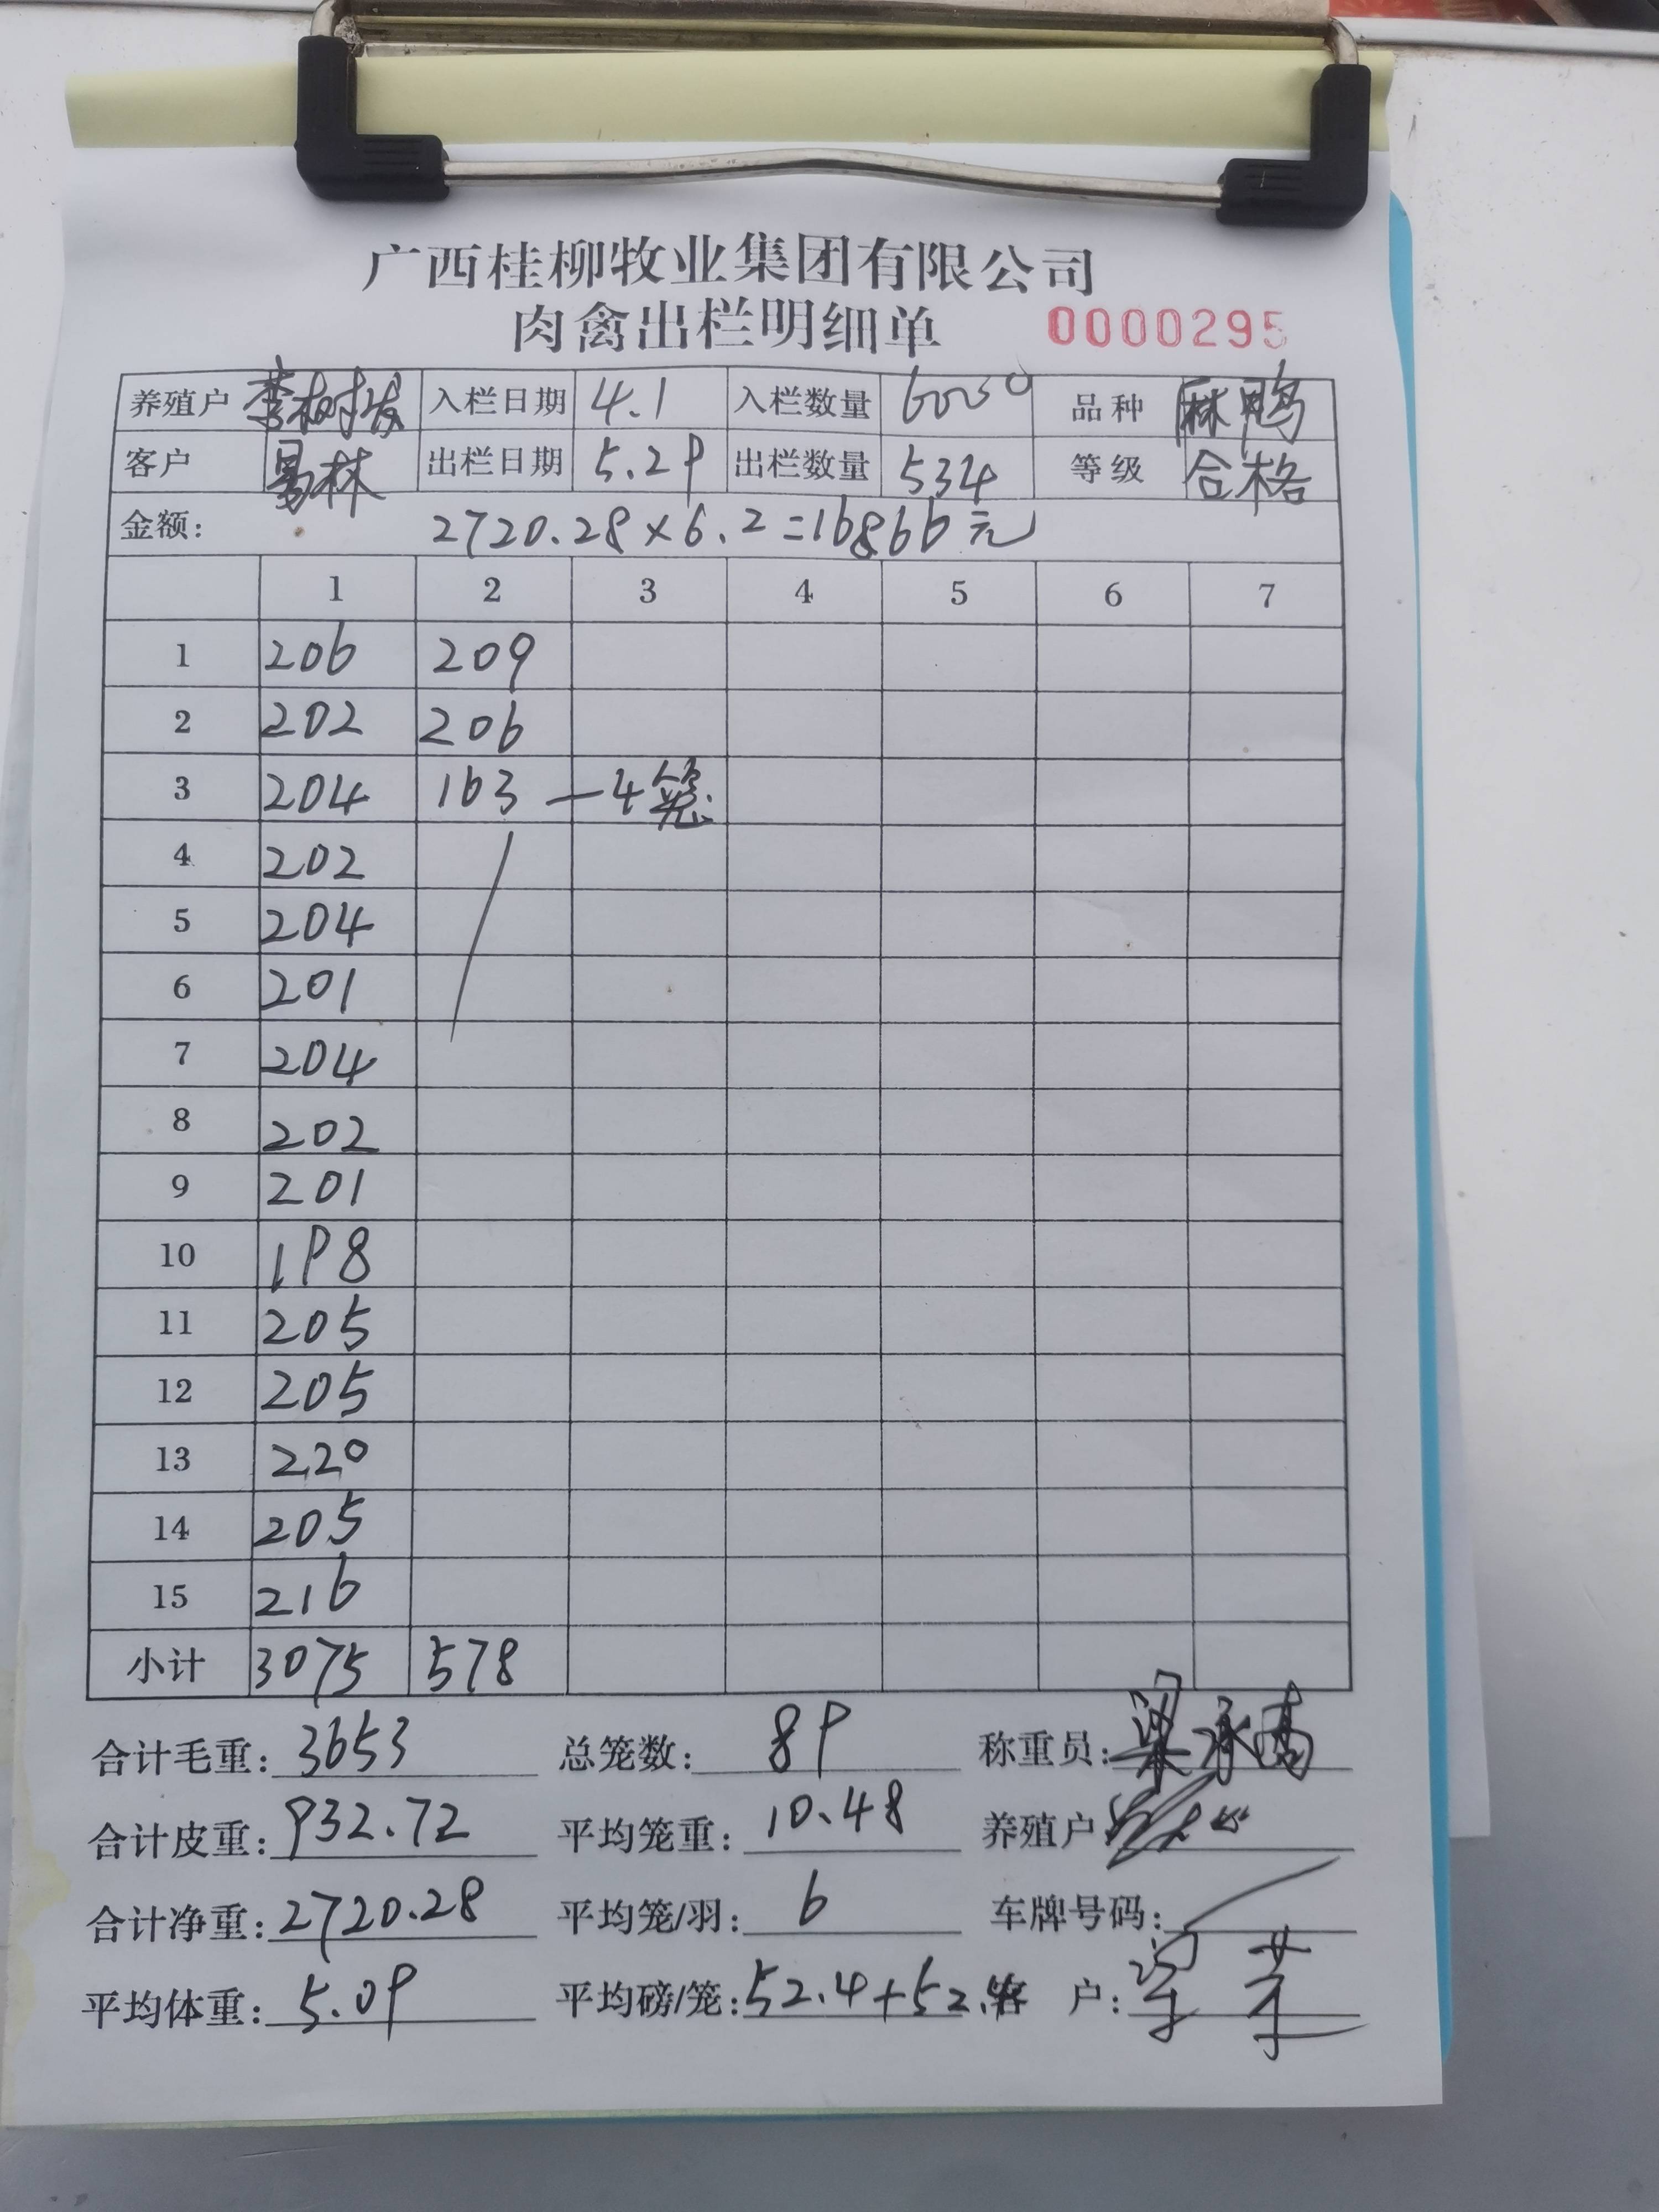 广西桂柳牧业集团有限公司
肉禽出栏明细单 0000295
养殖户 李树发 入栏日期 4.1 入栏数量 6030 品种 麻鸭
客户 易林 出栏日期 5.29 出栏数量 534 等级 合格
金额: 2720.28×6.2=16866元
1 2 3 4 5 6 7
1 206 209
2 202 206
3 204 163 —4笼
4 202
5 204
6 201
7 204
8 202
9 201
10 198
11 205
12 205
13 220
14 205
15 216
小计 3075 578
合计毛重: 3653 总笼数: 89 称重员: 梁
合计皮重: 932.72 平均笼重: 10.48 养殖户
合计净重: 2720.28 平均笼/羽: 6 车牌号码:
平均体重: 5.09 平均磅/笼: 52.4+52.4 客 户: